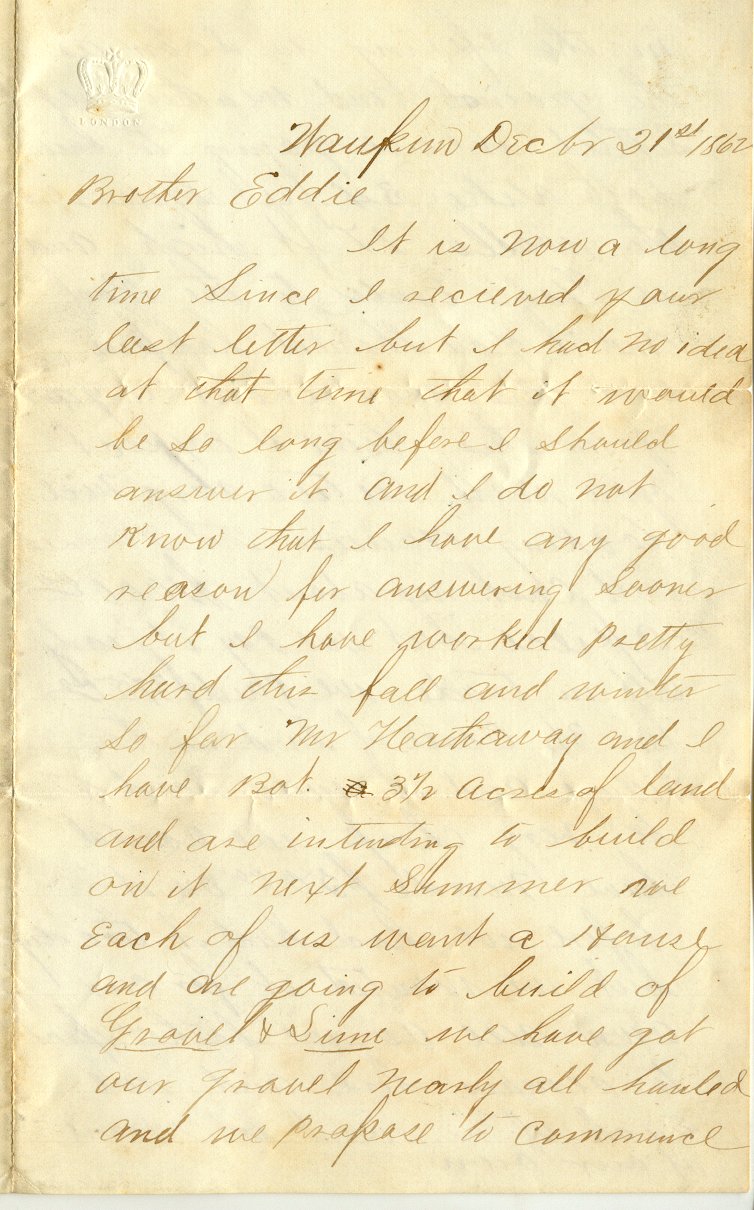 LONDON
Waukon Decbr 21st 1862
Brother Eddie
It is now a long
time Since I recievd your
last letter but I had no idea
at that time that it would
be So long before I Should
answer it and I do not
Know that I have any good
reason for answering Sooner
but I have workd pretty
hard this fall and winter
So far Mr Heathaway and I
have Bot. 3 1/2 Acres of land
and are intending to build
on it next Summer we
Each of us want a House
and are going to build of
Gravel & Lime we have got
our gravel nearly all hauled
and we propose to commence